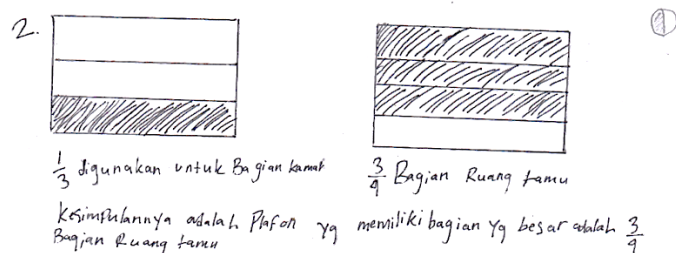 2.
1/3 digunakan untuk Bagian kamar
3/4 Bagian Ruang tamu
Kesimpulannya adalah Plafon yg memiliki bagian yg besar adalah 3/4
Bagian Ruang tamu